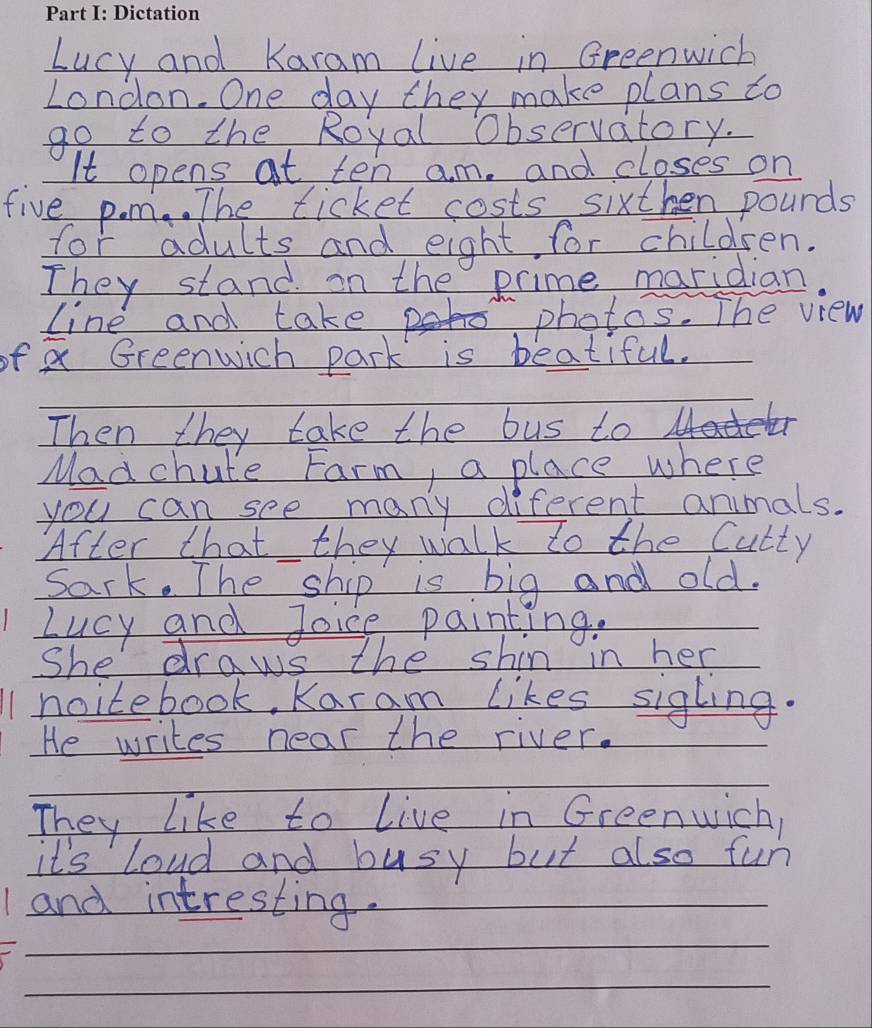 Part I: Dictation
Lucy and Karam live in Greenwich
London. One day they make plans to
go to the Royal Observatory.
It opens at ten a.m. and closes on
five p.m.. The ticket costs sixthen pounds
for adults and eight for children.
They stand on the prime maridian
line and take photos. The view
of Greenwich park is beatiful.
Then they take the bus to
Madchute Farm, a place where
you can see many diferent animals.
After that they walk to the Cutty
Sark. The ship is big and old.
1 Lucy and Joice painting.
She draws the shin in her
11 noitebook. Karam likes sigling.
1 He writes near the river.
They like to live in Greenwich,
it's loud and busy but also fun
1 and intresting.
5